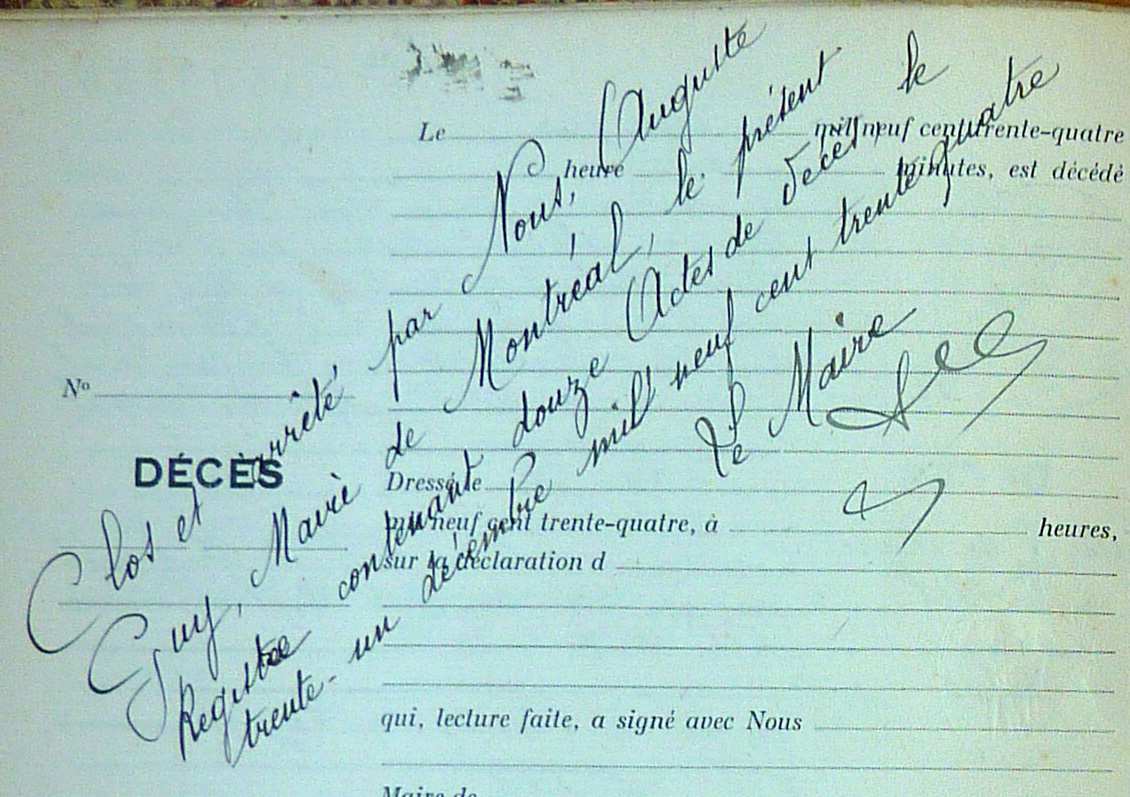 Le mil neuf cent trente-quatre
heure minutes, est décédé
Nº
DÉCÈS
Dressé le
mil neuf cent trente-quatre, à heures,
sur la déclaration d
qui, lecture faite, a signé avec Nous
Maire de
Clos et arrêté par Nous, Auguste
Guy, Maire de Montréal, le présent
Registre contenant douze Actes de décès, le
trente-un décembre mil neuf cent trente quatre
Le Maire